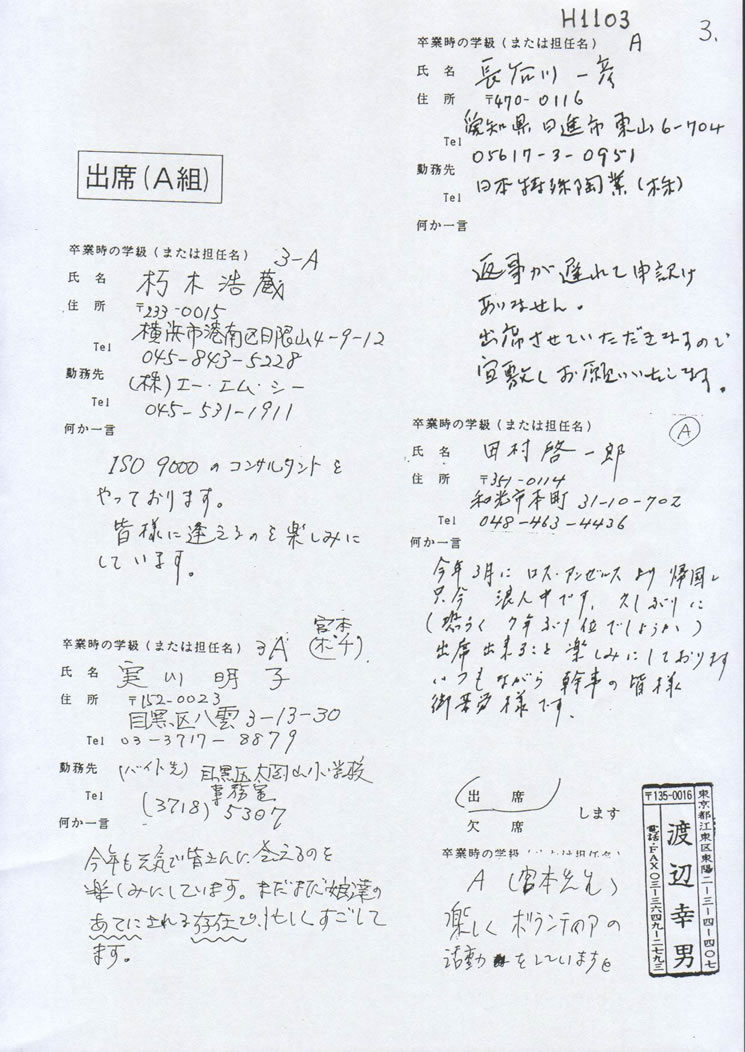 H1103
3.
出席(A組)
卒業時の学級(または担任名) 3-A
氏名 朽木浩蔵
住所 〒233-0015
横浜市港南区日限山4-9-12
Tel 045-843-5228
勤務先 (株)エー・エム・シー
Tel 045-531-1911
何か一言
ISO 9000のコンサルタントを
やっております。
皆様に逢えるのを楽しみに
しています。
卒業時の学級(または担任名) 3A 宮本
氏名 実川明子
住所 〒152-0023
目黒区八雲3-13-30
Tel 03-3717-8879
勤務先 (バイト先) 目黒区大岡山小学校
事務室
Tel (3718)5307
何か一言
今年も元気で皆さんに会えるのを
楽しみにしています。まだまだ娘達の
あてにされる存在で、忙しくすごして
ます。
卒業時の学級(または担任名) A
氏名 長谷川一彦
住所 〒470-0116
愛知県日進市東山6-704
Tel 05617-3-0951
勤務先 日本特殊陶業(株)
Tel
何か一言
返事が遅れて申訳け
ありません。
出席させていただきますので
宜敷しくお願いいたします。
卒業時の学級(または担任名) A
氏名 田村啓一郎
住所 〒351-0114
和光市本町31-10-702
Tel 048-463-4436
何か一言
今年3月にロス・アンゼルスより帰国し
只今 浪人中です。久しぶりに
(恐らく7年ぶり位でしょうか)
出席出来ること楽しみにしております
いつもながら幹事の皆様
御苦労様です。
出席
欠席 します
卒業時の学級(または担任名)
A(宮本先生)
楽しくボランティアの
活動をしています
〒135-0016
東京都江東区東陽二-三-四-四〇七
渡辺幸男
電話・FAX〇三-三六四九-二七九三